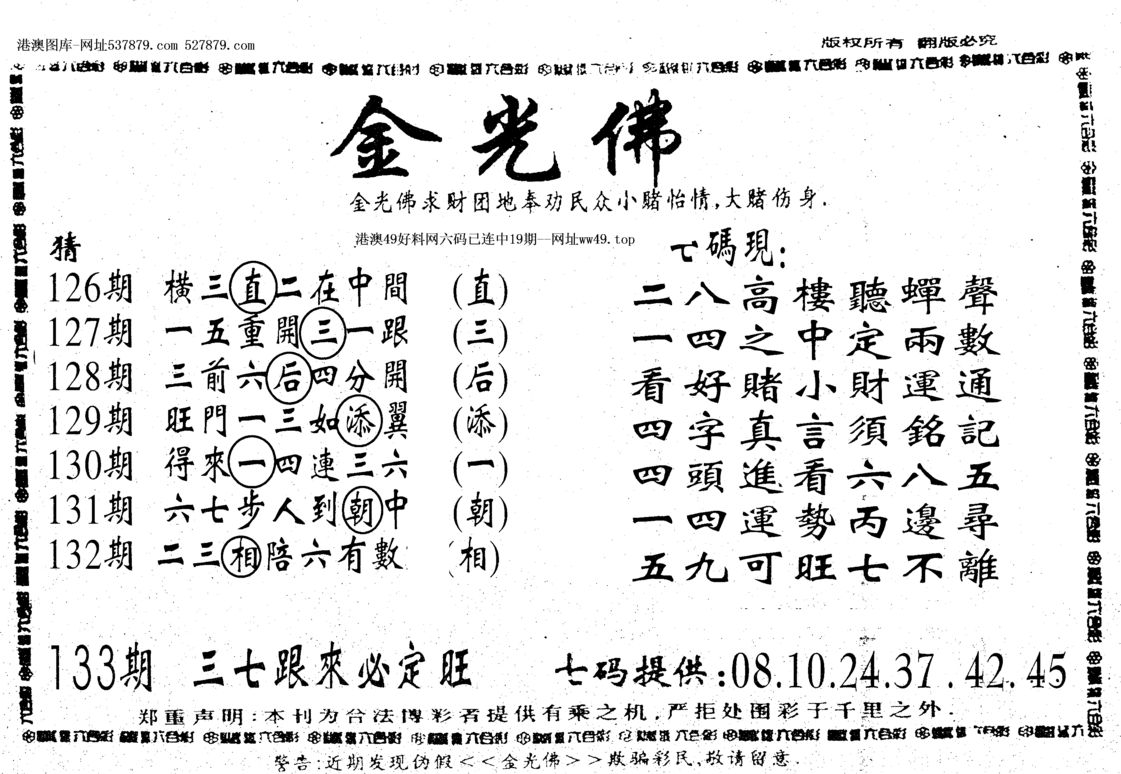 港澳图库-网址537879.com 527879.com
版权所有 翻版必究
金光佛
金光佛求财团地奉劝民众小赌怡情,大赌伤身.
港澳49好料网六码已连中19期--网址ww49.top
猜
126期 横三直二在中間 (直)
127期 一五重開三一跟 (三)
128期 三前六后四分開 (后)
129期 旺門一三如添翼 (添)
130期 得來一四連三六 (一)
131期 六七步人到朝中 (朝)
132期 二三相陪六有數 (相)
七碼現:
二八高樓聽蟬聲
一四之中定兩數
看好賭小財運通
四字真言須銘記
四頭進看六八五
一四運勢丙邊尋
五九可旺七不離
133期 三七跟來必定旺 七码提供:08.10.24.37.42.45
郑重声明:本刊为合法博彩者提供有乘之机,严拒处围彩于千里之外.
警告:近期发现伪假<<金光佛>>欺骗彩民,敬请留意.